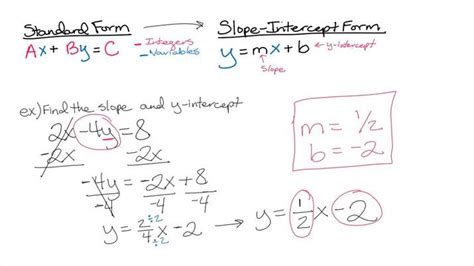 Standard Form → Slope-Intercept Form
Ax + By = C - Integers - Variables
y = mx + b ← y-intercept
↑ Slope
ex) Find the slope and y-intercept
2x - 4y = 8
-2x -2x
-4y = -2x + 8
-4 -4 -4
y = 2/4 x - 2
÷2
÷2
→ y = 1/2 x - 2
m = 1/2
b = -2